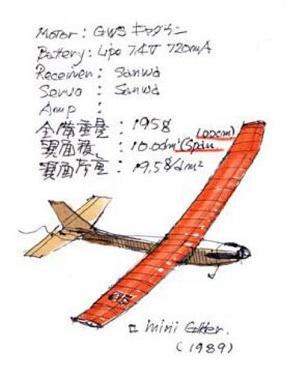 Motor: GWS キャグラン
Battery: Lipo 7.4V 720mA
Receiver: Sanwa
Servo: Sanwa
Amp :
全備重量: 195g
翼面積: 10.0dm²(Span 100cm)
翼面荷重: 19.5g/dm²
mini Glider.
(1989)